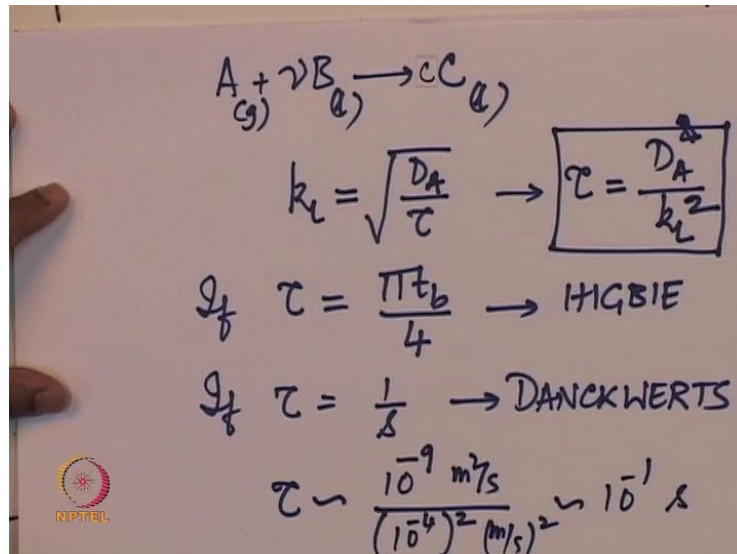 A(g) + νB(l) → cC(l)
k_L = √(D_A/τ) → τ = D_A/k_L²
If τ = πt_b/4 → HIGBIE
If τ = 1/s → DANCKWERTS
τ ~ 10⁻⁹ m²/s / (10⁻⁴)² (m/s)² ~ 10⁻¹ s
NPTEL